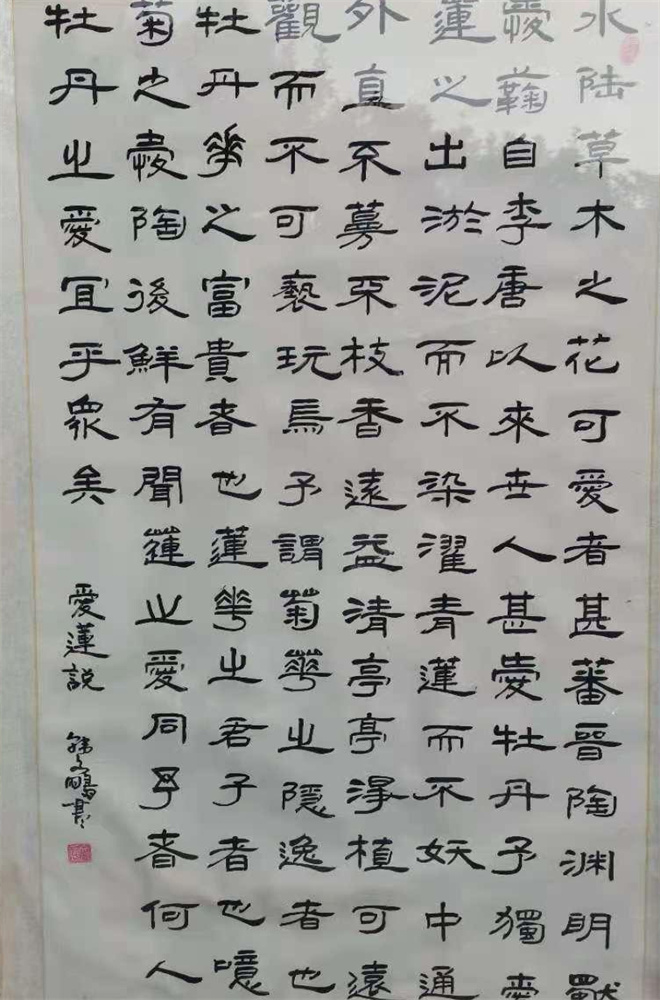 水陸草木之花可愛者甚蕃晋陶渊明
愛蘜自李唐以來世人甚愛牡丹予獨愛
蓮之出淤泥而不染濯青蓮而不妖中通
外直不蔓不枝香遠益清亭亭淨植可遠
觀而不可褻玩焉予謂菊華之隱逸者也
牡丹華之富貴者也蓮華之君子者也噫
菊之愛陶後鮮有聞蓮之愛同予者何人
牡丹之愛宜乎眾矣
愛蓮説
鵬書